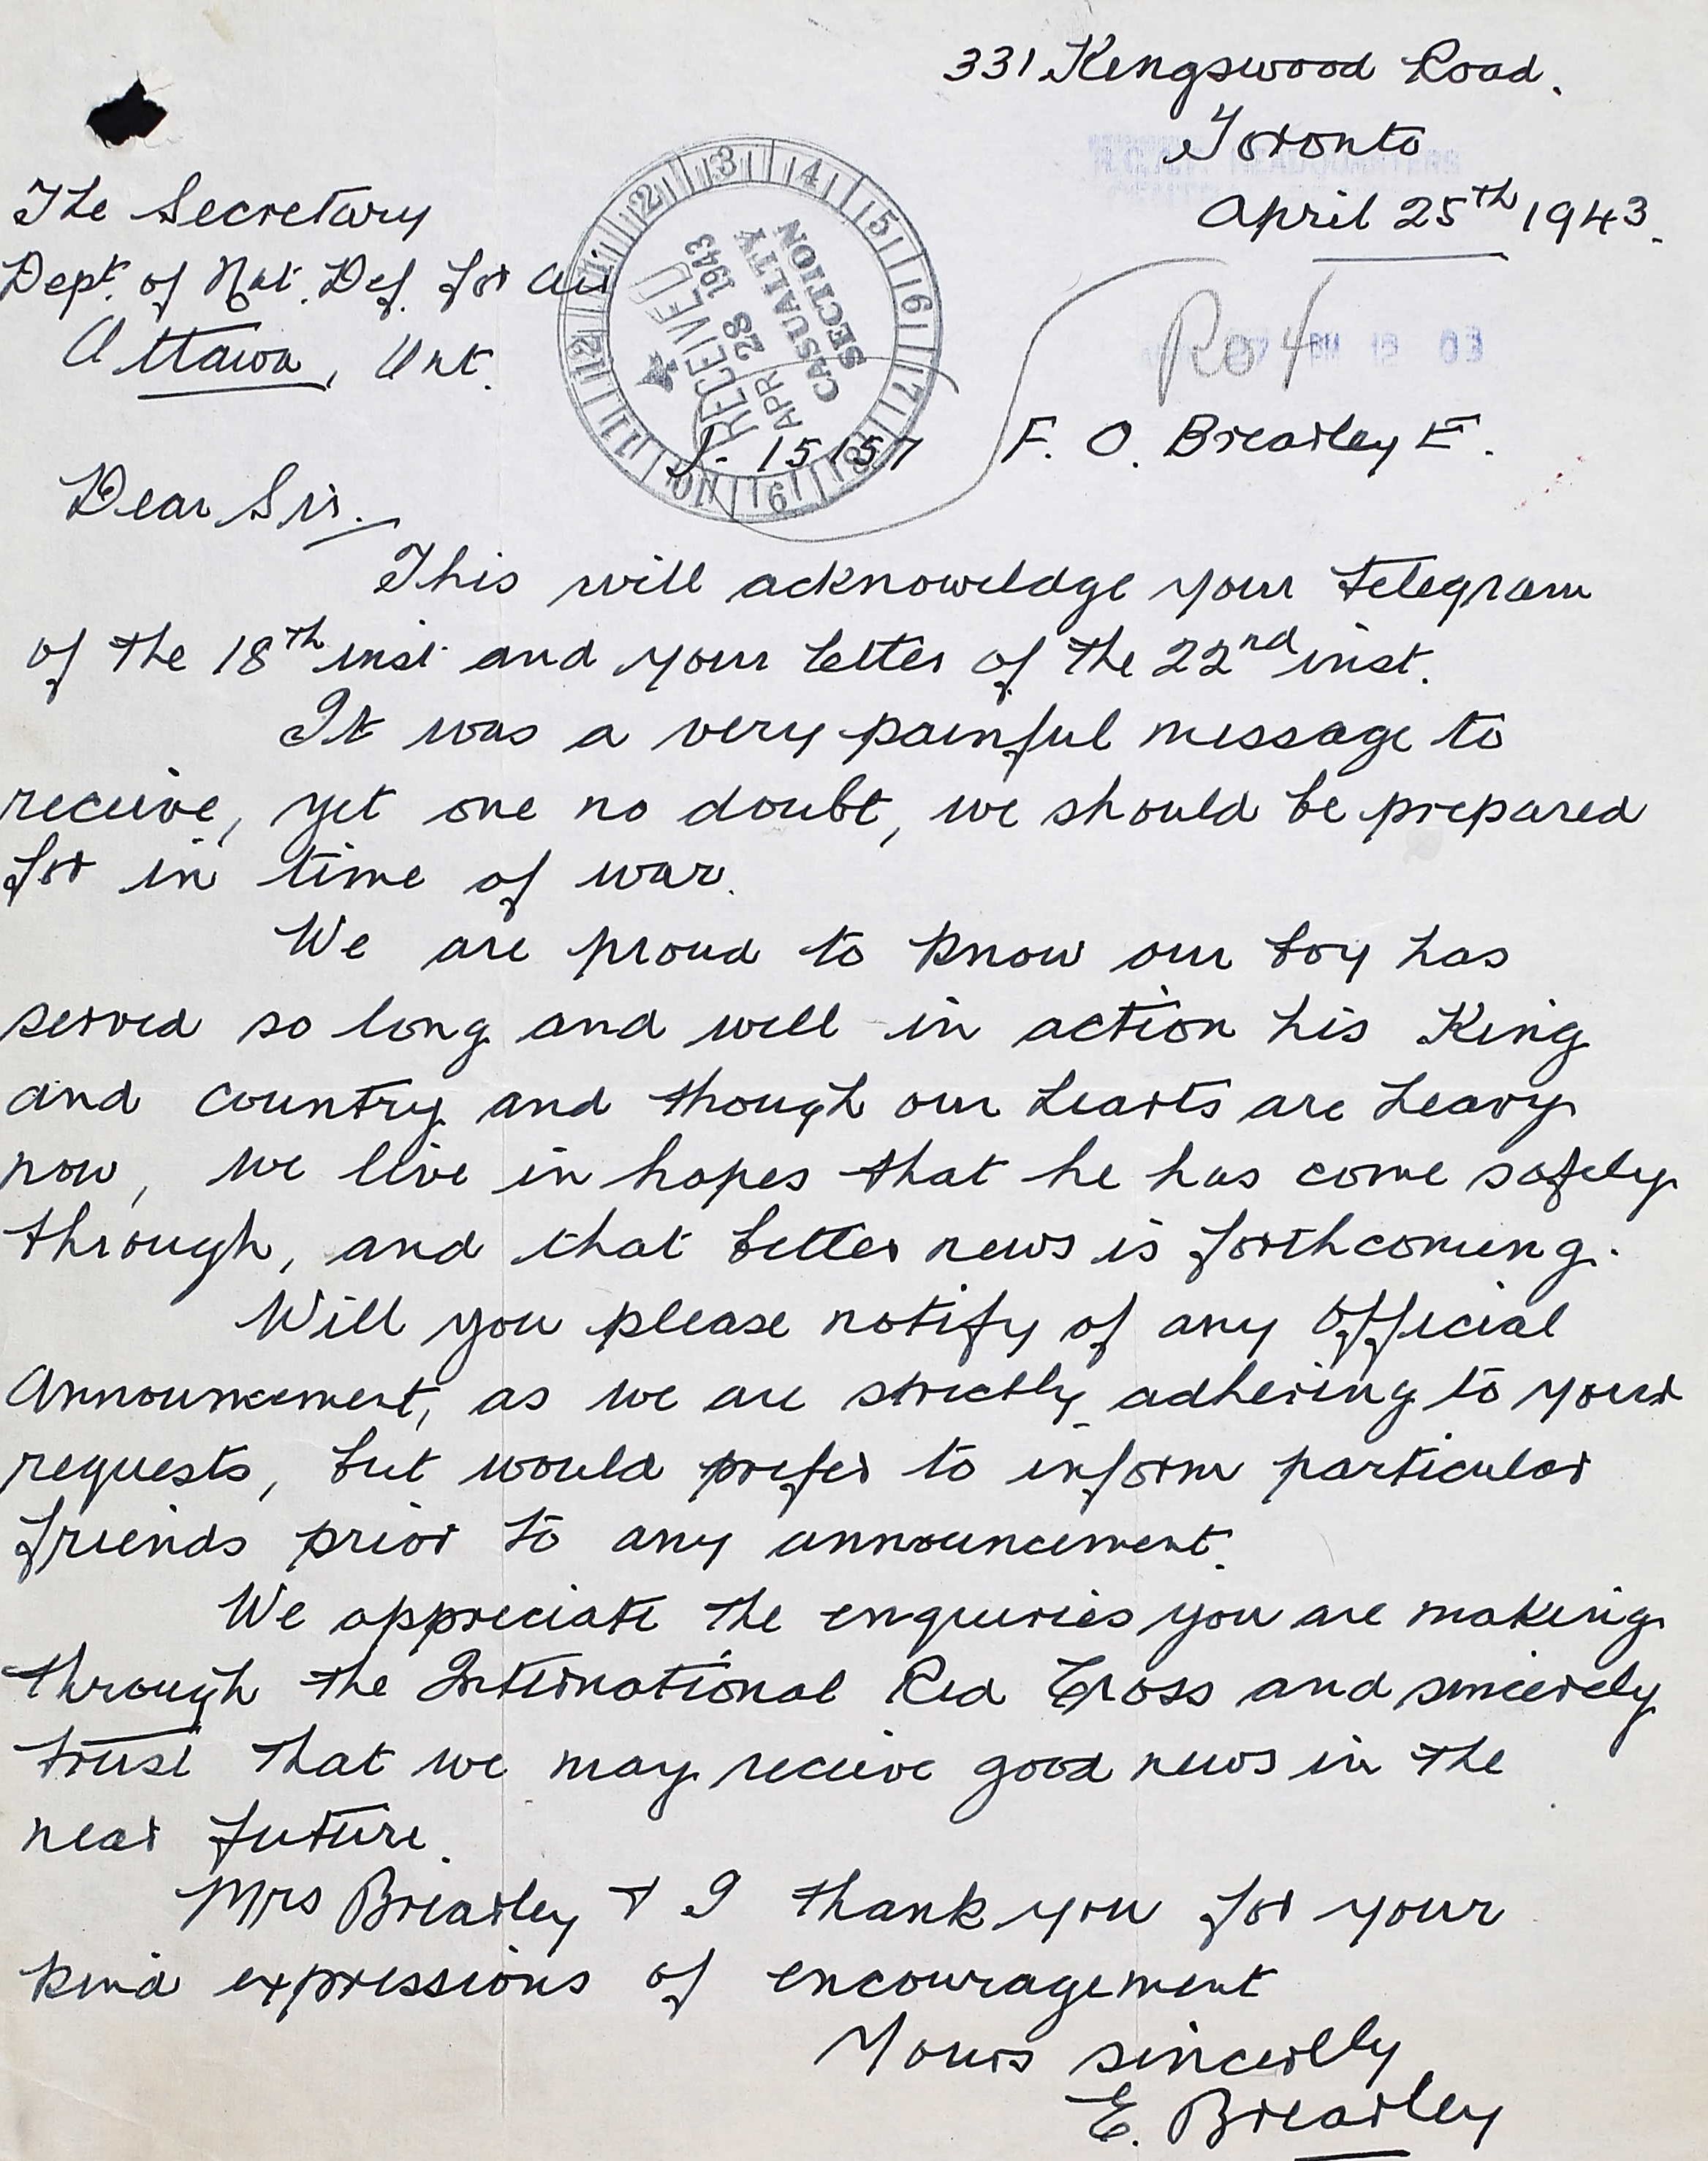 331 Kingswood Road.
Toronto
April 25th 1943.
The Secretary
Dept. of Nat. Def. for Air
Ottawa, Ont.
3 4 5 6 7 8 9 10 11 12 1 2
RECEIVED
APR 28 1943
CASUALTY
SECTION
03
J. 15157 F. O. Brearley E.
Dear Sir.
This will acknowledge your telegram
of the 18th inst and your letter of the 22nd inst.
It was a very painful message to
receive, yet one no doubt, we should be prepared
for in time of war.
We are proud to know our boy has
served so long and well in action his King
and country and though our hearts are heavy
now, we live in hopes that he has come safely
through, and that better news is forthcoming.
Will you please notify of any Official
Announcement, as we are strictly adhering to your
requests, but would prefer to inform particular
friends prior to any announcement.
We appreciate the enquiries you are making
through the International Red Cross and sincerely
trust that we may receive good news in the
near future.
Mrs Brearley & I thank you for your
kind expressions of encouragement
Yours sincerely
E. Brearley